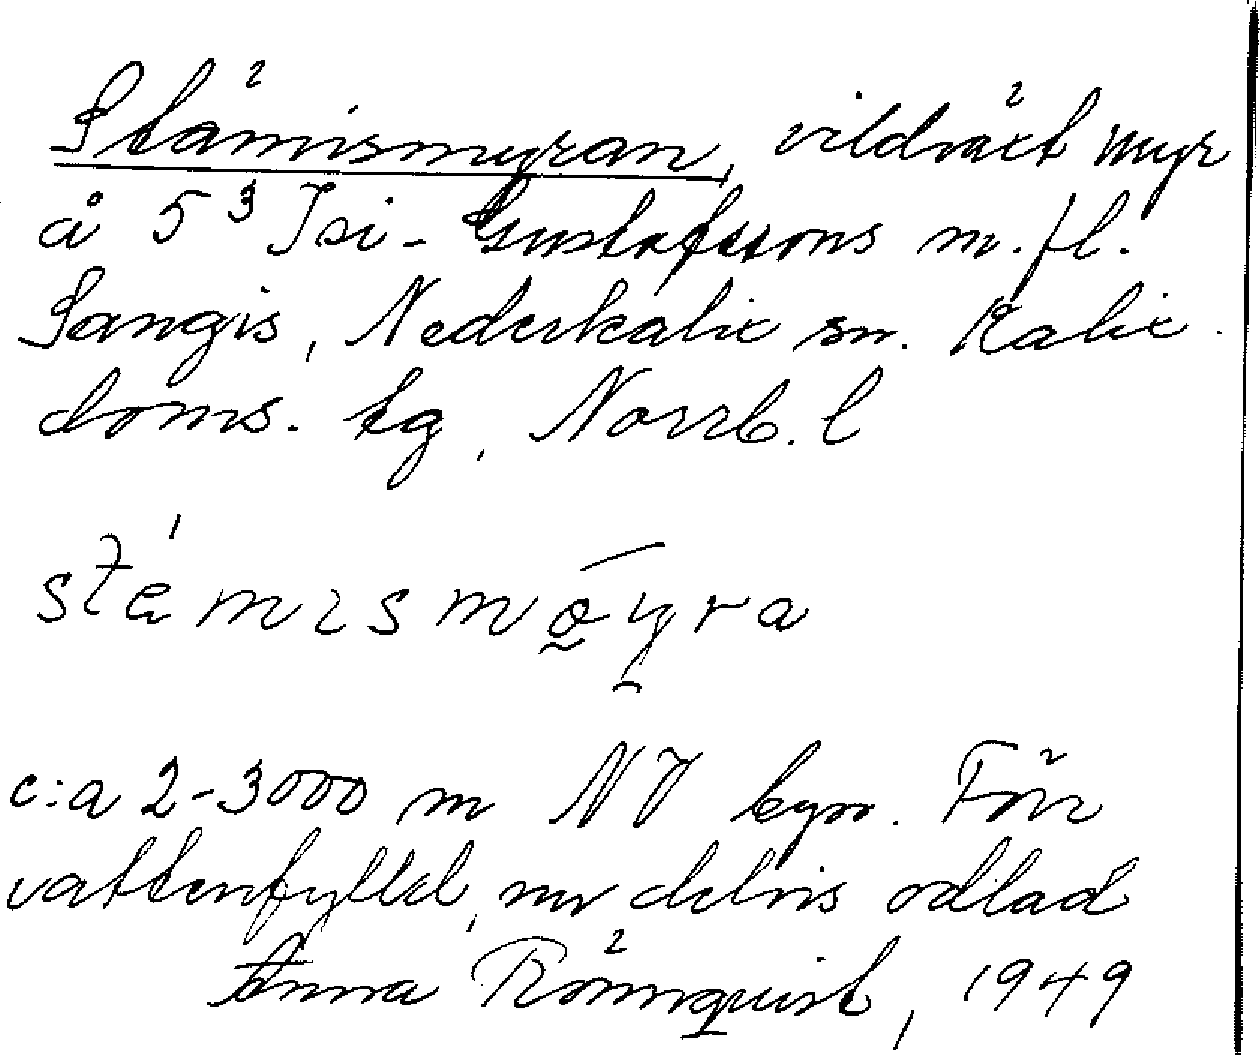 Stämismyran, vildväxt myr
å 5³ Isi-Gustafssons m.fl.
Sangis, Nederkalix sn. Kalix
doms. tg, Norrb. l
c:a 2-3000 m NV byn. Förr
vattenfylld, nu delvis odlad
Anna Rönnquist, 1949